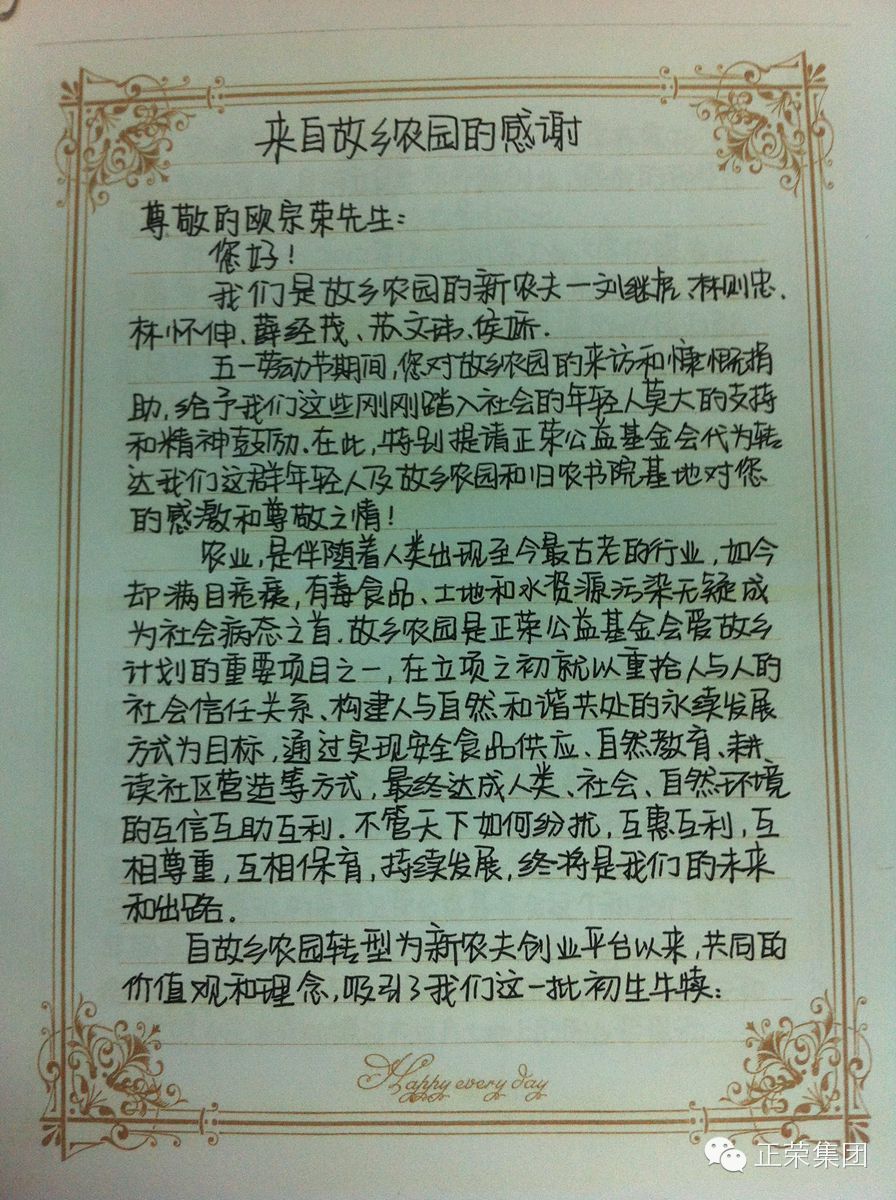 来自故乡农园的感谢
尊敬的欧宗荣先生:
您好!
我们是故乡农园的新农夫—刘继虎、林则忠、
林怀伸、薛经茂、苏文玮、侯娇.
五一劳动节期间,您对故乡农园的来访和慷慨捐
助,给予我们这些刚刚踏入社会的年轻人莫大的支持
和精神鼓励.在此,特别提请正荣公益基金会代为转
达我们这群年轻人及故乡农园和归农书院基地对您
的感激和尊敬之情!
农业,是伴随着人类出现至今最古老的行业,如今
却满目疮痍,有毒食品、土地和水资源污染无疑成
为社会病态之首.故乡农园是正荣公益基金会爱故乡
计划的重要项目之一,在立项之初就以重拾人与人的
社会信任关系、构建人与自然和谐共处的永续发展
方式为目标,通过实现安全食品供应、自然教育、耕
读社区营造等方式,最终达成人类、社会、自然环境
的互信互助互利.不管天下如何纷扰,互惠互利,互
相尊重,互相保育,持续发展,终将是我们的未来
和出路。
自故乡农园转型为新农夫创业平台以来,共同的
价值观和理念,吸引了我们这一批初生牛犊:
Happy every day
正荣集团